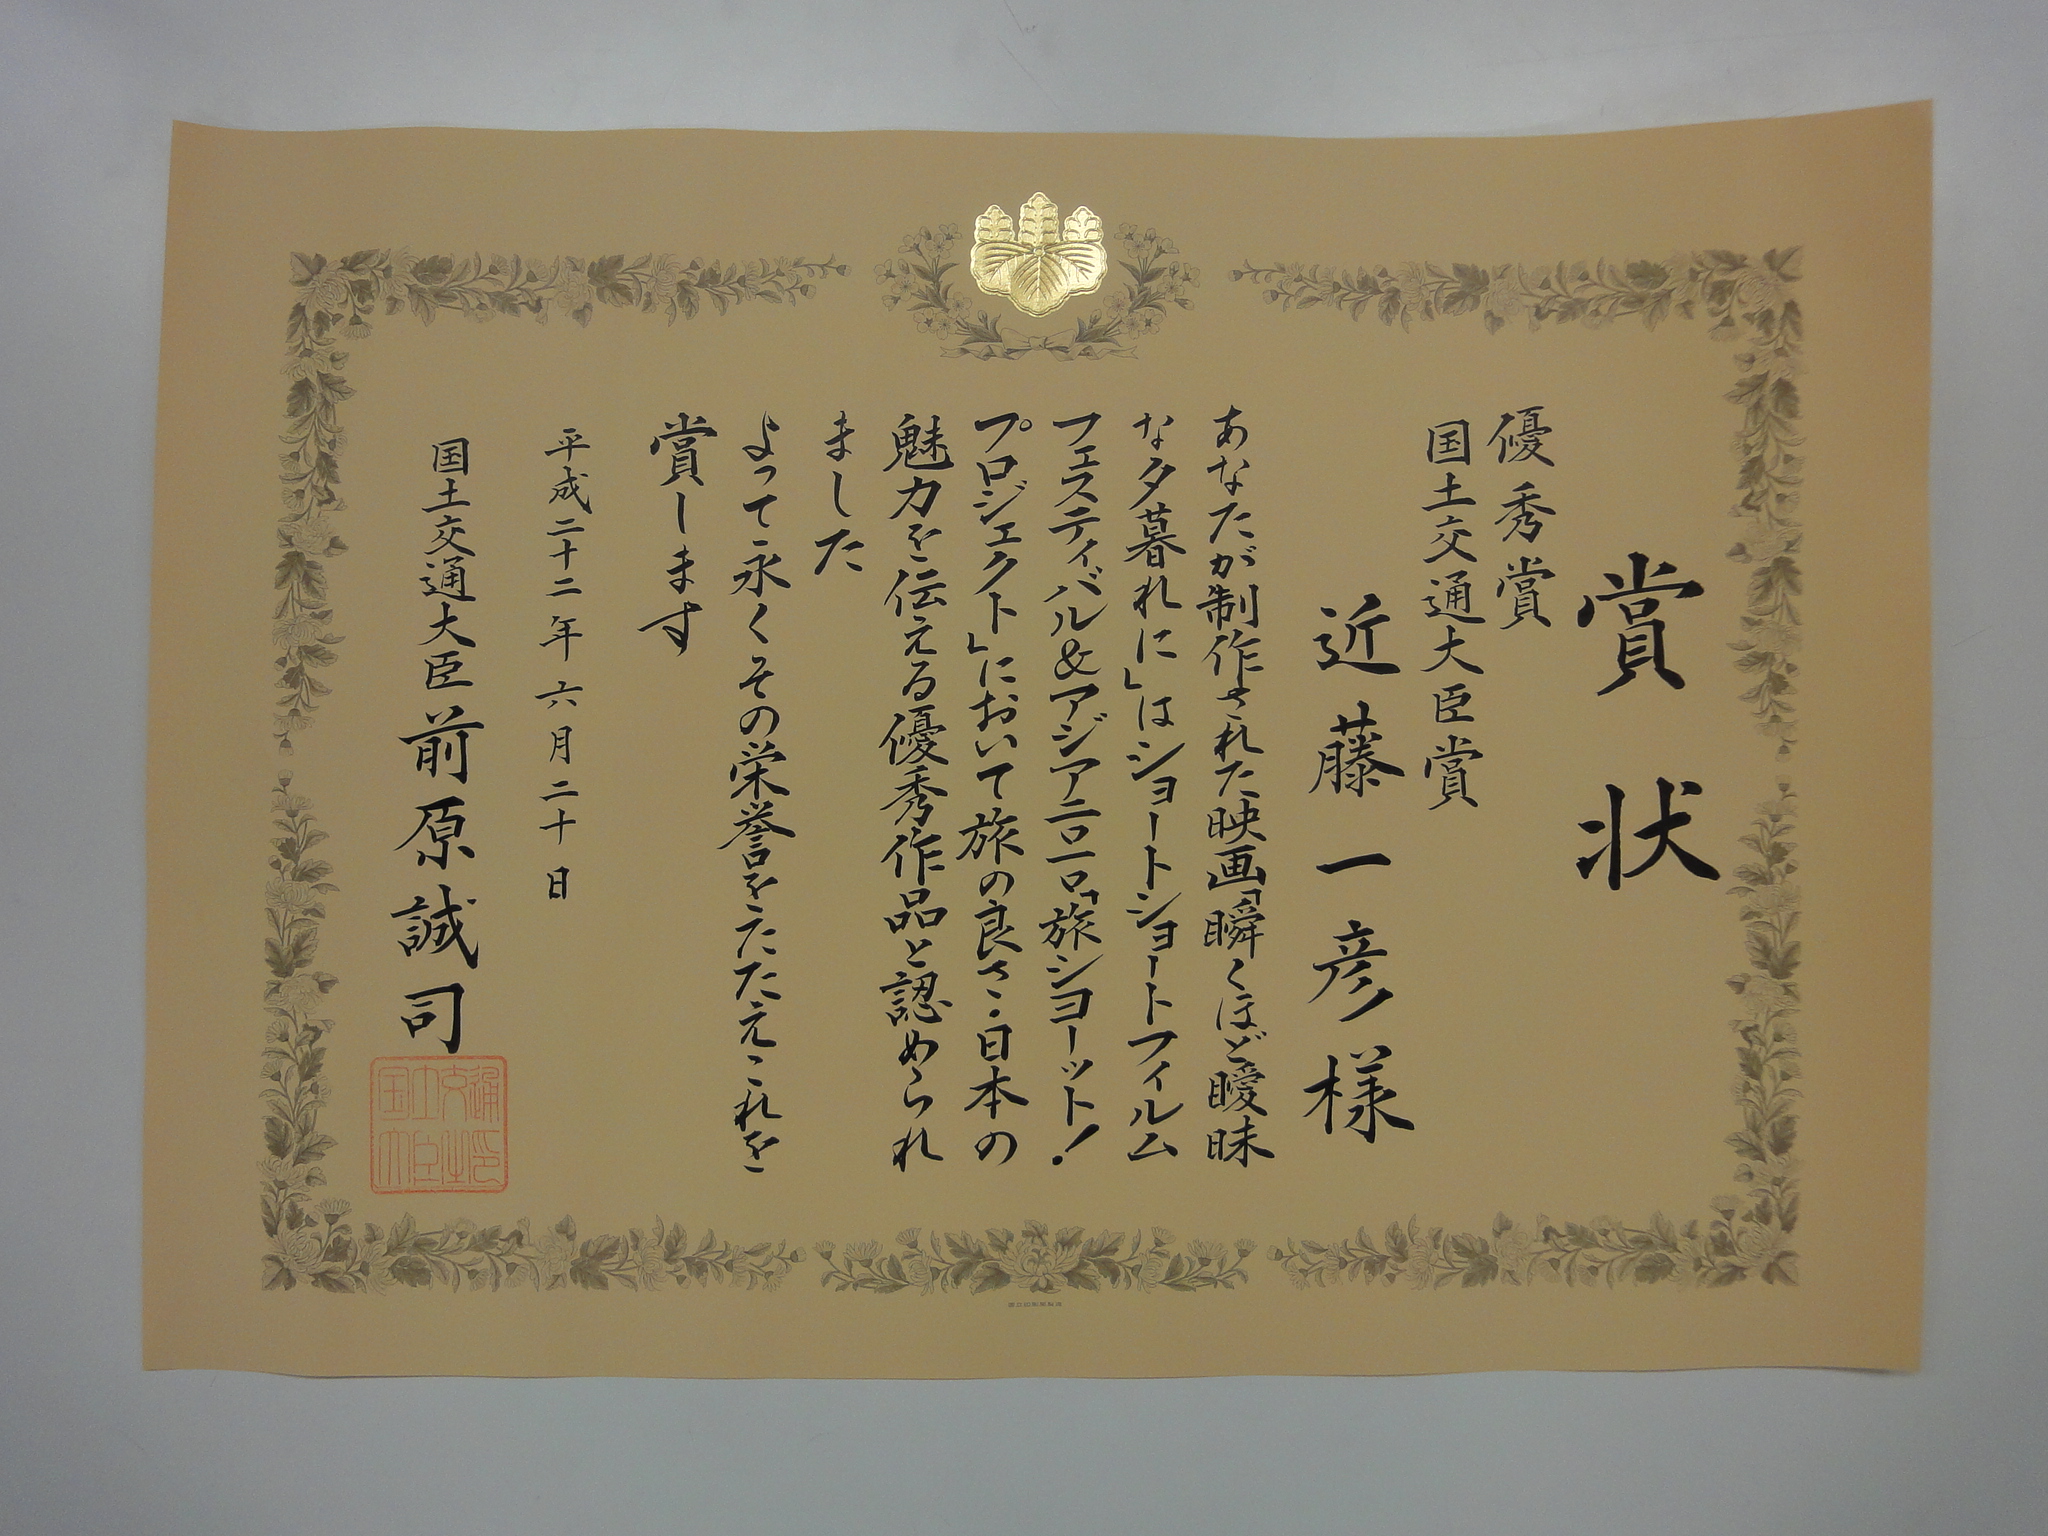 賞状
優秀賞
国土交通大臣賞
近藤一彦様
あなたが制作された映画「瞬くほど曖昧
な夕暮れに」はショートショートフィルム
フェスティバル&アジア二〇一〇「旅ショーット!
プロジェクト」において旅の良さ・日本の
魅力を伝える優秀作品と認められ
ました
よって永くその栄誉をたたえこれを
賞します
平成二十二年六月二十日
国土交通大臣前原誠司
国土交通大臣之印